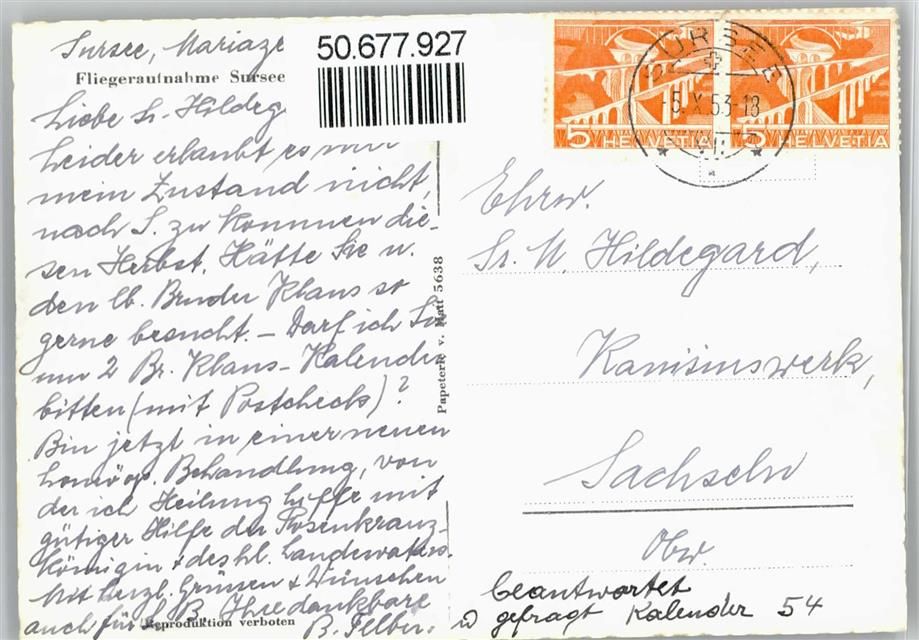 Sursee, Mariaze
50.677.927
Fliegeraufnahme Sursee
Liebe Sr. Hildeg
Leider erlaubt es mir
mein Zustand nicht,
nach S. zu kommen die-
sen Herbst. Hätte Sie u.
den lb. Bruder Klaus so
gerne besucht. – Darf ich Sie
um 2 Br. Klaus-Kalender
bitten (mit Postcheck)?
Bin jetzt in einer neuen
homöop. Behandlung, von
der ich Heilung hoffe mit
gütiger Hilfe der Rosenkranz-
königin + des hl. Landesvaters.
Mit herzl. Grüssen + Wünschen
auch für S. B. Ihre dankbare
B. Felber.
Reproduktion verboten
Papeterie v. Matt 5638
SURSEE
-5.X.53-18
5 HELVETIA
5 HELVETIA
Ehrw.
Sr. M. Hildegard,
Kanisiuswerk,
Sachseln
Obw.
beantwortet
gefragt Kalender 54